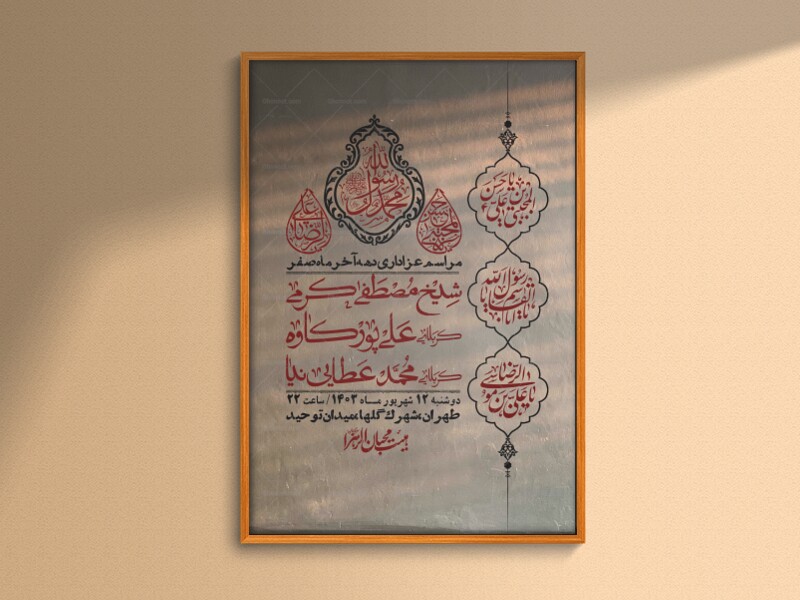 محمد رسول الله
علی الرضا
حسن المجتبی
مراسم عزاداری دهه آخر ماه صفر
شیخ مصطفی کرمی
کربلائی علی پورکاوه
کربلائی محمد عطایی نیا
دوشنبه ۱۲ شهریور ماه ۱۴۰۳ / ساعت ۲۲
طهران، شهرک گلها، میدان توحید
هیئت محبان الزهرا
یا حسن بن علی المجتبی
یا اباالقاسم یا رسول الله
یا علی بن موسی الرضا